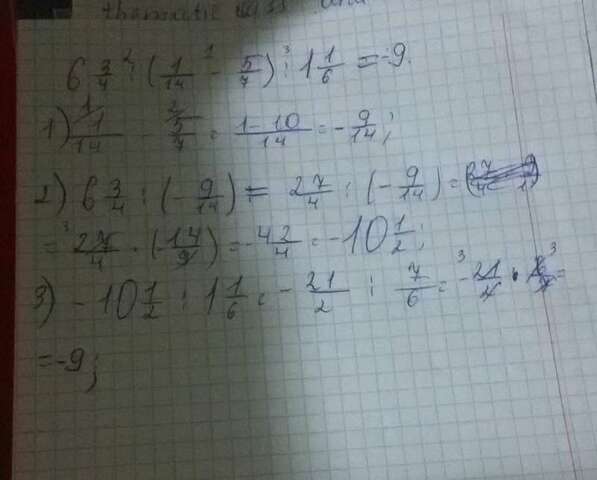 thematic
6 3/4 : (1/14 - 5/7) : 1 1/6 = -9.
1) 1/14 - 5/7 = (1-10)/14 = -9/14;
2) 6 3/4 : (-9/14) = 27/4 : (-9/14) =
= 27/4 · (-14/9) = -42/4 = -10 1/2;
3) -10 1/2 : 1 1/6 = -21/2 : 7/6 = -21/2 · 6/7 =
= -9;